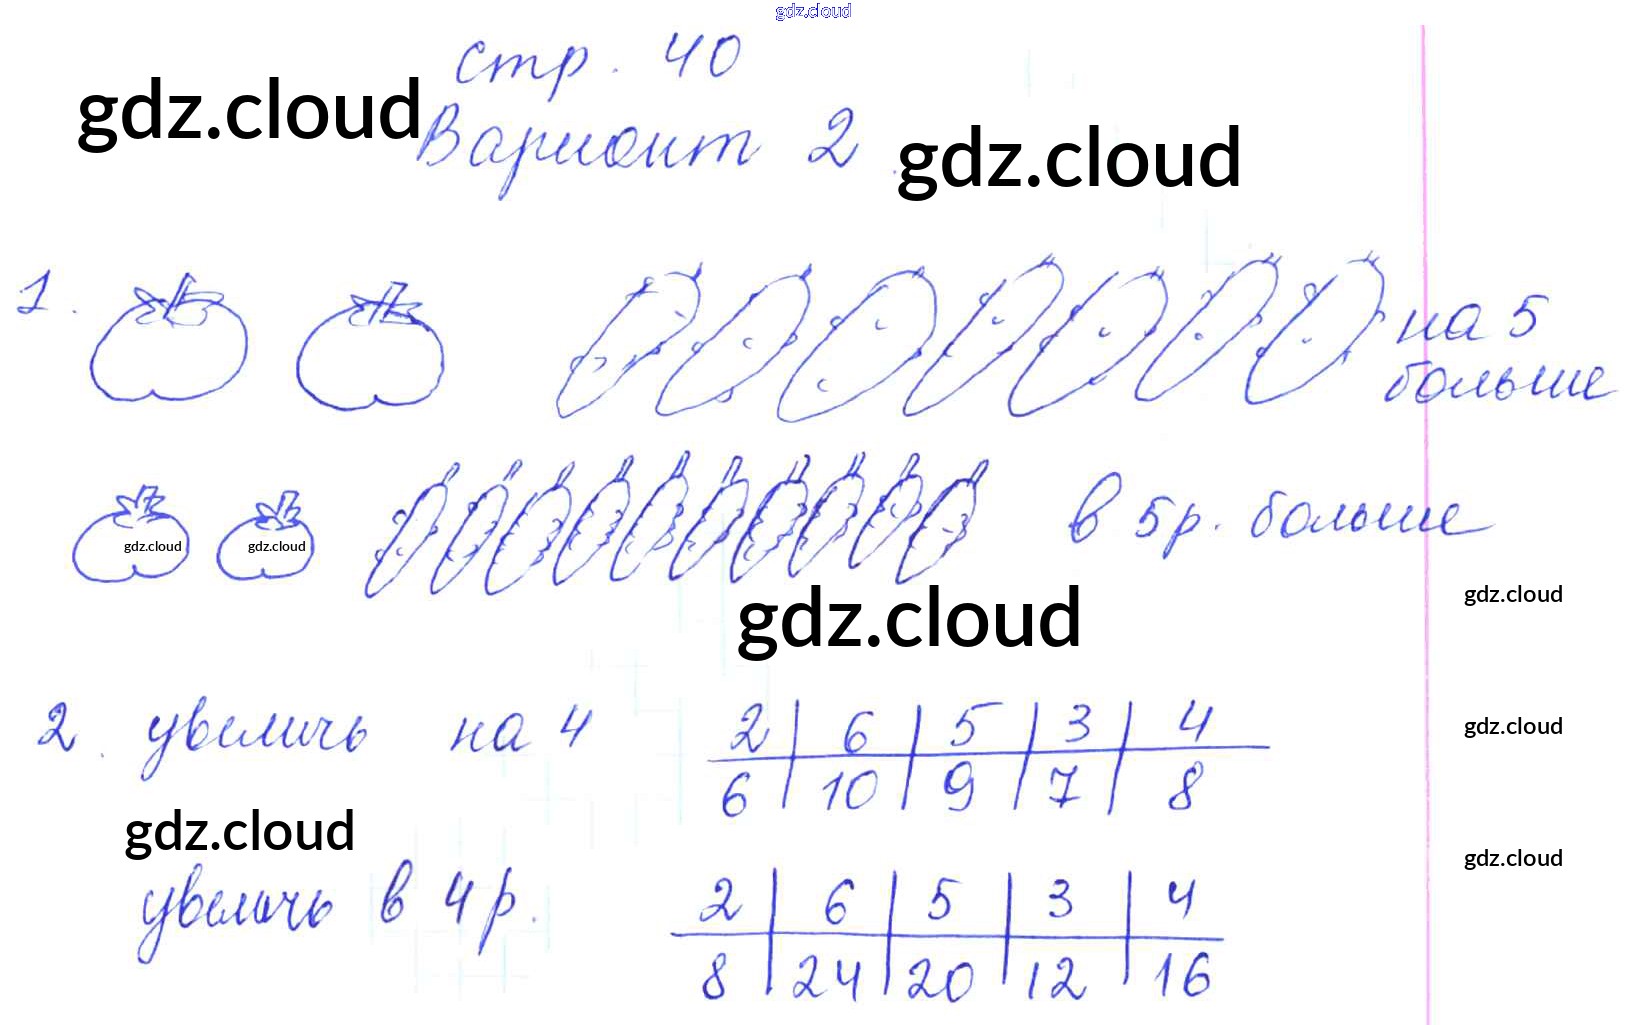 gdz.cloud
стр. 40
gdz.cloud
Вариант 2
gdz.cloud
1.
на 5
больше
gdz.cloud gdz.cloud
в 5 р. больше
gdz.cloud
gdz.cloud
2. увеличь на 4
2 | 6 | 5 | 3 | 4
6 | 10 | 9 | 7 | 8
gdz.cloud
gdz.cloud
gdz.cloud
увеличь в 4 р.
2 | 6 | 5 | 3 | 4
8 | 24 | 20 | 12 | 16